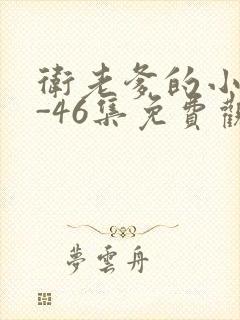 衛老爹的小
-46集免費觀
夢雲舟